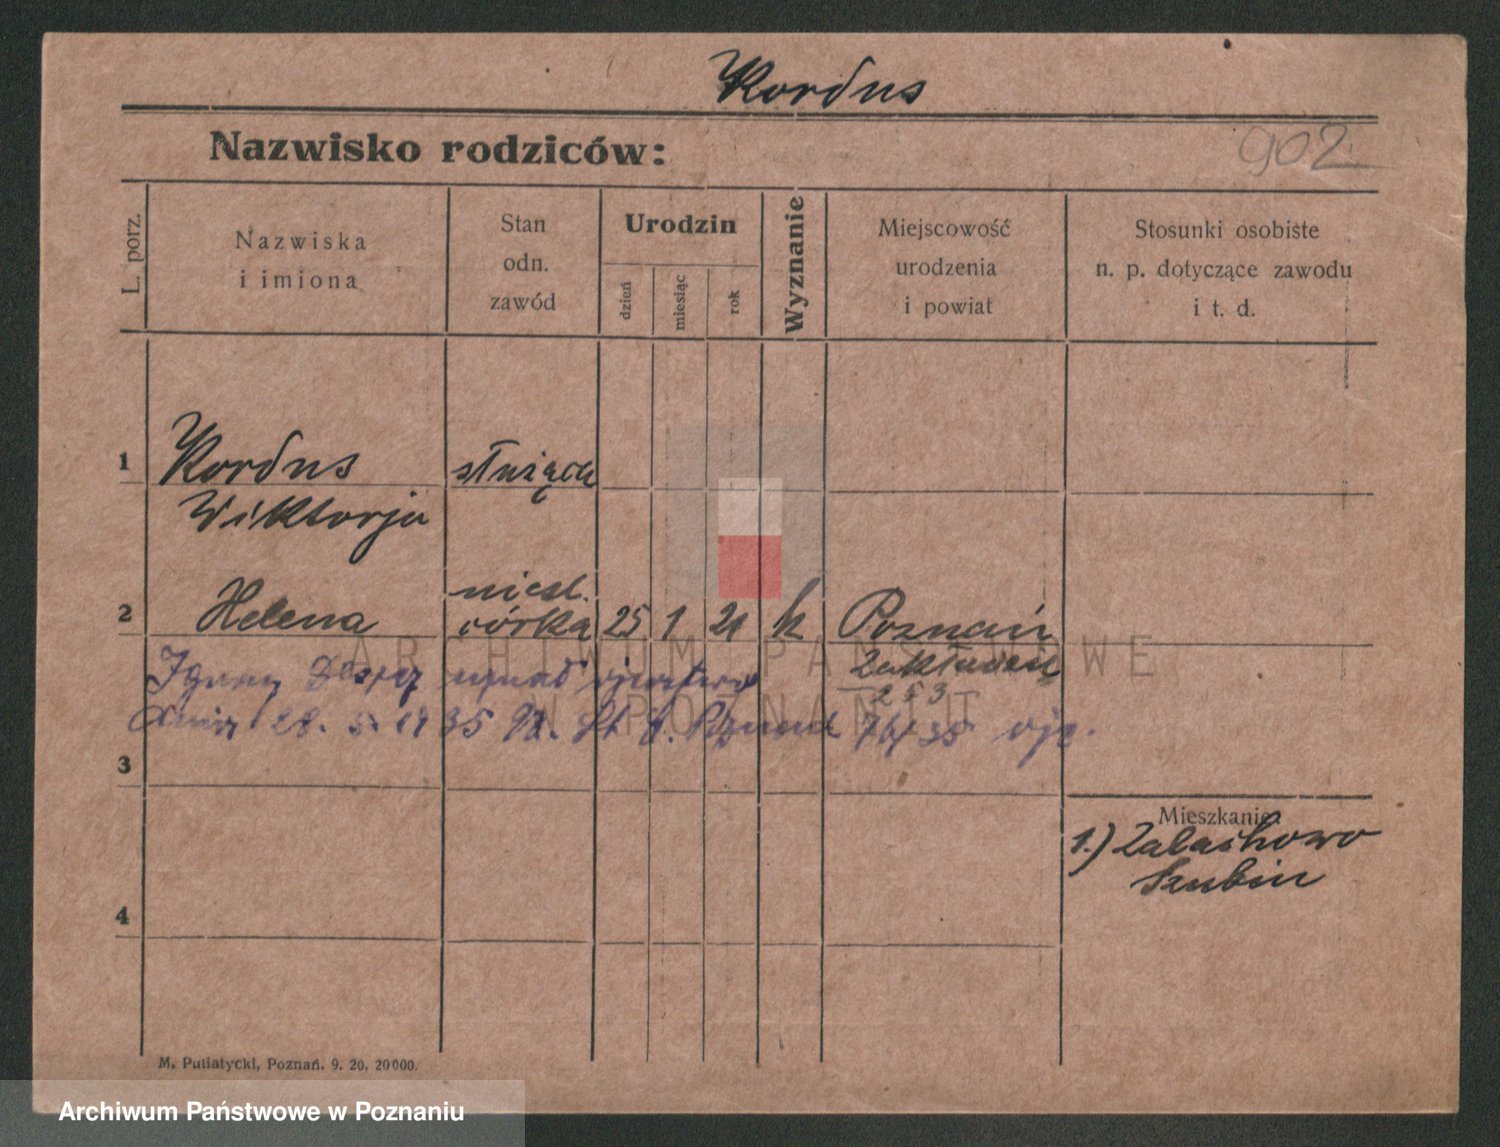 Kordus
Nazwisko rodziców:
902
L. porz.
Nazwiska
i imiona
Stan
odn.
zawód
Urodzin
dzień
miesiąc
rok
Wyznanie
Miejscowość
urodzenia
i powiat
Stosunki osobiste
n. p. dotyczące zawodu
i t. d.
1 Kordus służąca
Wiktorja
niesl.
2 Helena córka 25 1 21 k Poznań
ARCHIWUM PAŃSTWOWE
253
W POZNANIU
Ignacy uznał ojcostwo
dnia 28. 5. 1935 76/35
3
Mieszkanie
1.) Zalachowo
Szubin
4
M. Putiatycki, Poznań. 9. 20. 20000.
Archiwum Państwowe w Poznaniu